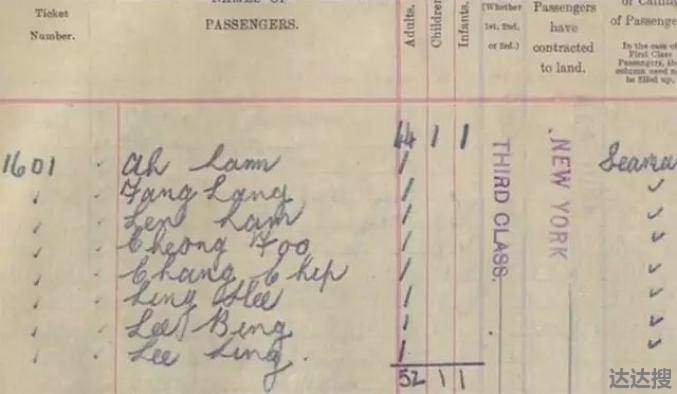 Ticket Number.
NAMES OF PASSENGERS.
Adults.
Children
Infants.
(Whether 1st, 2nd, or 3rd.)
Passengers have contracted to land.
or Calling of Passenge
In the case of First Class Passengers, this column need n be filled up.
44 1 1
1601 Ah Lam 1 Seama
✓ Fang Lang 1 ✓
✓ Len Lam 1 ✓
✓ Cheong Foo 1 ✓
✓ Chang Chip 1 ✓
✓ Ling Hee 1 ✓
✓ Lee Bing 1 ✓
✓ Lee Ling. 1 ✓
52 1 1
THIRD CLASS.
NEW YORK
达达搜